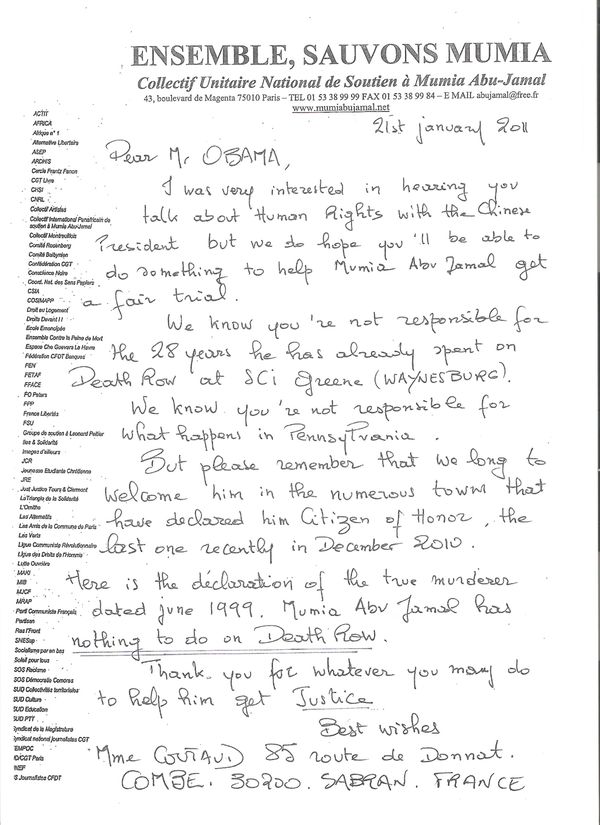 ENSEMBLE, SAUVONS MUMIA
Collectif Unitaire National de Soutien à Mumia Abu-Jamal
43, boulevard de Magenta 75010 Paris – TEL 01 53 38 99 99 FAX 01 53 38 99 84 – E MAIL abujamal@free.fr
www.mumiabujamal.net
21st january 2011
Dear Mr OBAMA,
I was very interested in hearing you
talk about Human Rights with the Chinese
President but we do hope you'll be able to
do something to help Mumia Abu Jamal get
a fair trial.
We know you're not responsible for
the 28 years he has already spent on
Death Row at SCi Greene (WAYNESBURG).
We know you're not responsible for
what happens in Pennsylvania.
But please remember that we long to
welcome him in the numerous towns that
have declared him Citizen of Honor, the
last one recently in December 2010.
Here is the déclaration of the true murderer
dated june 1999. Mumia Abu Jamal has
nothing to do on Death Row.
Thank you for whatever you may do
to help him get Justice
Best wishes
Mme 85 route de Donnat.
COMBE. 30200. SABRAN. FRANCE
ACTIT
AFRICA
Afrique n° 1
Alternative Libertaire
ASEP
ARDHIS
Cercle Frantz Fanon
CGT Livre
CHSI
CNRL
Collectif Artistes
Collectif International Panafricain de
soutien à Mumia Abu-Jamal
Collectif Montreuillois
Comité Rosenberg
Confédération CGT
Conscience Noire
Coord. Nat. des Sans Papiers
CSIA
COSIMAPP
Droit au Logement
Droits Devant !!
Ecole Emancipée
Ensemble Contre la Peine de Mort
Espace Che Guevara Le Havre
Fédération CFDT Banques
FEN
FETAF
FFACE
FO Paters
FPP
France Libertés
FSU
Groupe de soutien à Leonard Peltier
Iles & Solidarité
Images d'ailleurs
JCR
Jeunesse Etudiante Chrétienne
JRE
Just Justice Tours & Clermont
LaTriangle de la Solidarité
L'Ornitho
Les Alternatifs
Les Amis de la Commune de Paris
Les Verts
Ligue Communiste Révolutionnaire
Ligue des Droits de l'Homme
Lutte Ouvrière
MAKI
MIB
MJCF
MRAP
Parti Communiste Français
Partisan
Ras l'Front
SNESup
Socialisme par en bas
Soleil pour tous
SOS Racisme
SOS Démocratie Comores
SUD Collectivités territoriales
SUD Culture
SUD Education
SUD PTT
Syndicat de la Magistrature
Syndicat national journalistes CGT